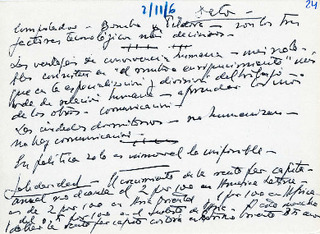 2/11/6 24
Computador – Bomba y Píldora – son los tres
factores tecnológicos más decisivos.
Las ventajas de convivencia humana – mas nota-
bles consisten en el mutuo enriquecimiento" mas
que en la especialización y división del trabajo –
de relación humana – aprender los unos
de los otros. comunicación –
Las ciudades dormitorios – no humanizan –
no hay comunicación –
En política solo es inmoral lo imposible –
Solidaridad – El crecimiento de la renta per capita –
anual no alcanza el 2 por 100 en America Latina –
es de 2 por 100 en Asia oriental 1 por 100 en Africa
por 100 en el
la renta per capita